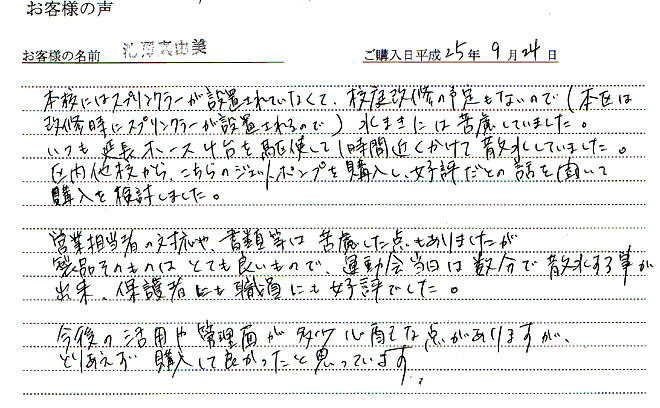 お客様の声
お客様の名前 真由美 ご購入日平成25年9月24日
本校にはスプリンクラーが設置されていなくて、校庭改修の予定もないので(本区は
改修時にスプリンクラーが設置されるので)水まきには苦慮していました。
いつも延長ホース4台を駆使して1時間近くかけて散水していました。
区内他校から、こちらのジェットポンプを購入し、好評だとの話を聞いて
購入を検討しました。
営業担当者の対応や、書類等は苦慮した点もありましたが
製品そのものはとても良いもので、運動会当日は数分で散水する事が
出来、保護者にも職員にも好評でした。
今後の活用や管理面が多少心配な点がありますが、
とりあえず購入して良かったと思っています。